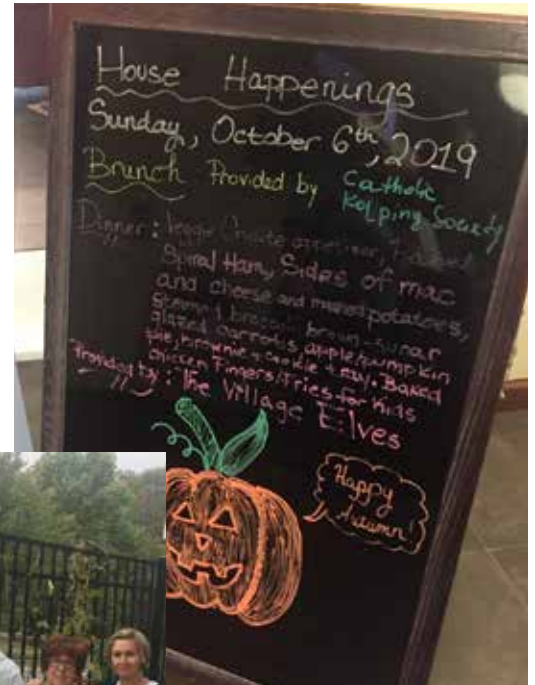 House Happenings
Sunday, October 6th, 2019
Brunch Provided by Catholic
Kolping Society
Dinner: Veggie Crudite appetizer,
Spiral Ham, Sides of mac
and cheese and mashed potatoes,
steamed broccoli brown-sugar
glazed carrots, apple/pumpkin
pie, brownie & cookie tray. Baked
chicken fingers/fries for kids
Provided by: The Village Elves
Happy
Autumn!